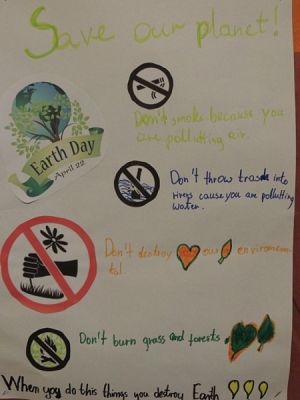 Save our planet!
Earth Day
April 22
Don't smoke because you
are pollutting air.
Don't throw trash into
rivers cause you are pollutting
water.
Don't destroy our enviromen-
tal.
Don't burn grass and forests
When you do this things you destroy Earth